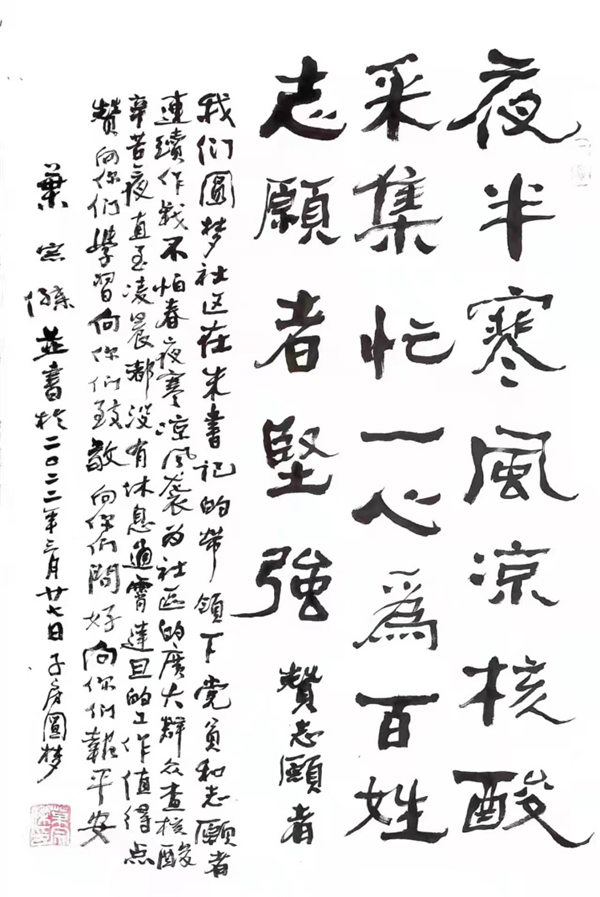 夜半寒風凉核酸
采集忙一心爲百姓
志願者堅強 赞志願者
我们圓梦社区在朱書记的带领下党員和志願者
連續作戰不怕春夜寒凉风袭为社区的廣大群众查核酸
辛苦夜直至凌晨都没有休息通霄達旦的工作值得点
赞向你们學習向你们致敬向你们問好向你们報平安
葉宗 並書於二〇二二年三月廿七日子房圓梦